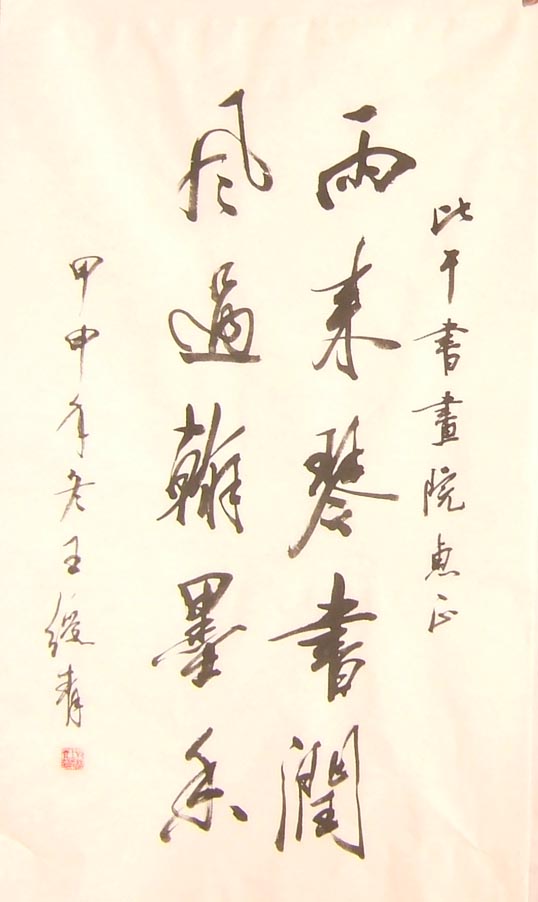 比干書畫院惠正
雨来琴書潤
風過翰墨香
甲申年冬王綬青